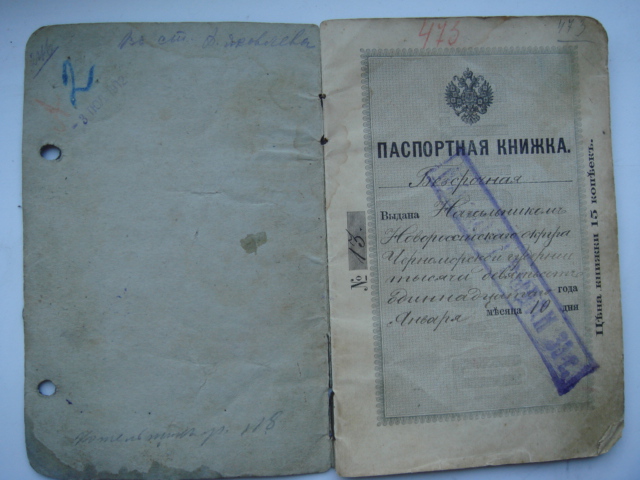 2
Въ ст.
473
473
ПАСПОРТНАЯ КНИЖКА.
Безсрочная
Выдана Начальникомъ
Новороссійскаго округа
Черноморской губерніи
тысяча девятьсотъ
Одиннадцатаго года
Января мѣсяца 10 дня
№ 13.
Цѣна книжки 15 копѣекъ.